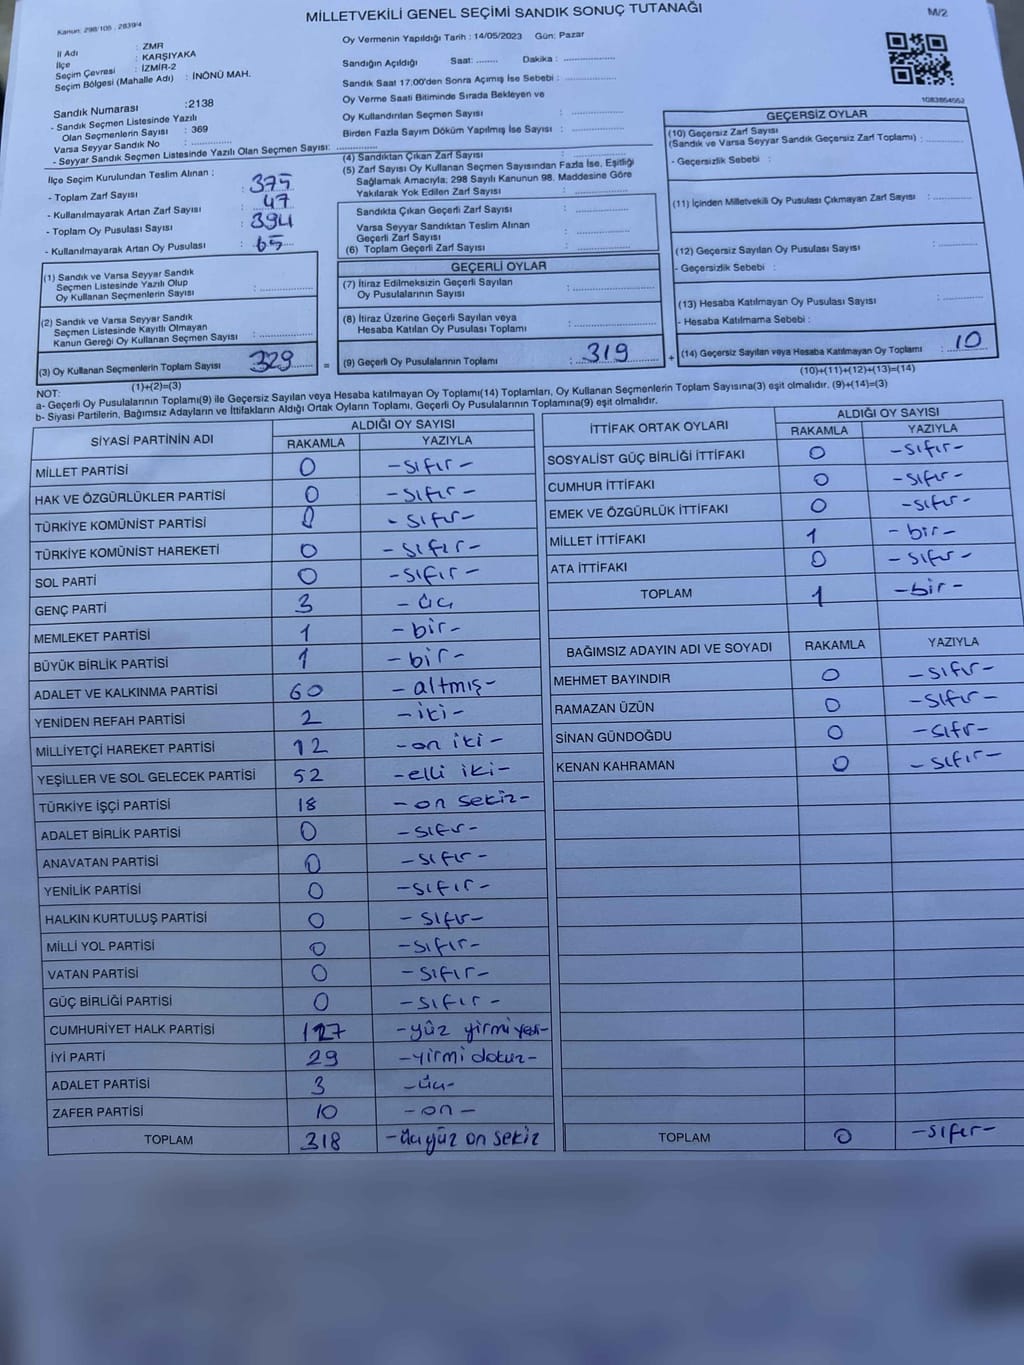 Kanun: 298/105 , 2839/4
MİLLETVEKİLİ GENEL SEÇİMİ SANDIK SONUÇ TUTANAĞI
M/2
İl Adı : ZMR
İlçe : KARŞIYAKA
Seçim Çevresi : İZMİR-2
Seçim Bölgesi (Mahalle Adı) : İNÖNÜ MAH.
Sandık Numarası :2138
- Sandık Seçmen Listesinde Yazılı
Olan Seçmenlerin Sayısı : 369
Varsa Seyyar Sandık No : ..............
- Seyyar Sandık Seçmen Listesinde Yazılı Olan Seçmen Sayısı: ..............
Oy Vermenin Yapıldığı Tarih : 14/05/2023 Gün: Pazar
Sandığın Açıldığı Saat: ....... Dakika : ..............
Sandık Saat 17.00'den Sonra Açımış İse Sebebi : ..............
Oy Verme Saati Bitiminde Sırada Bekleyen ve
Oy Kullandırılan Seçmen Sayısı : ..............
Birden Fazla Sayım Döküm Yapılmış İse Sayısı : ..............
1083864552
İlçe Seçim Kurulundan Teslim Alınan :
- Toplam Zarf Sayısı : 375
- Kullanılmayarak Artan Zarf Sayısı : 47
- Toplam Oy Pusulası Sayısı : 394
- Kullanılmayarak Artan Oy Pusulası : 65
(1) Sandık ve Varsa Seyyar Sandık
Seçmen Listesinde Yazılı Olup
Oy Kullanan Seçmenlerin Sayısı : ..............
(2) Sandık ve Varsa Seyyar Sandık
Seçmen Listesinde Kayıtlı Olmayan
Kanun Gereği Oy Kullanan Seçmen Sayısı : ..............
(3) Oy Kullanan Seçmenlerin Toplam Sayısı : 329 =
(1)+(2)=(3)
(4) Sandıktan Çıkan Zarf Sayısı : ..............
(5) Zarf Sayısı Oy Kullanan Seçmen Sayısından Fazla İse, Eşitliği
Sağlamak Amacıyla; 298 Sayılı Kanunun 98. Maddesine Göre
Yakılarak Yok Edilen Zarf Sayısı : ..............
Sandıkta Çıkan Geçerli Zarf Sayısı : ..............
Varsa Seyyar Sandıktan Teslim Alınan
Geçerli Zarf Sayısı : ..............
(6) Toplam Geçerli Zarf Sayısı : ..............
GEÇERLİ OYLAR
(7) İtiraz Edilmeksizin Geçerli Sayılan
Oy Pusulalarının Sayısı : ..............
(8) İtiraz Üzerine Geçerli Sayılan veya
Hesaba Katılan Oy Pusulası Toplamı : ..............
(9) Geçerli Oy Pusulalarının Toplamı : 319 +
GEÇERSİZ OYLAR
(10) Geçersiz Zarf Sayısı
(Sandık ve Varsa Seyyar Sandık Geçersiz Zarf Toplamı) : ..............
- Geçersizlik Sebebi :
(11) İçinden Milletvekili Oy Pusulası Çıkmayan Zarf Sayısı : ..............
(12) Geçersiz Sayılan Oy Pusulası Sayısı : ..............
- Geçersizlik Sebebi :
(13) Hesaba Katılmayan Oy Pusulası Sayısı : ..............
- Hesaba Katılmama Sebebi :
(14) Geçersiz Sayılan veya Hesaba Katılmayan Oy Toplamı : 10
(10)+(11)+(12)+(13)=(14)
NOT:
a- Geçerli Oy Pusulalarının Toplamı(9) ile Geçersiz Sayılan veya Hesaba katılmayan Oy Toplamı(14) Toplamları, Oy Kullanan Seçmenlerin Toplam Sayısına(3) eşit olmalıdır. (9)+(14)=(3)
b- Siyasi Partilerin, Bağımsız Adayların ve İttifakların Aldığı Ortak Oyların Toplamı, Geçerli Oy Pusulalarının Toplamına(9) eşit olmalıdır.
SİYASİ PARTİNİN ADI ALDIĞI OY SAYISI
RAKAMLA YAZIYLA
MİLLET PARTİSİ 0 -sıfır-
HAK VE ÖZGÜRLÜKLER PARTİSİ 0 -sıfır-
TÜRKİYE KOMÜNİST PARTİSİ 0 -sıfır-
TÜRKİYE KOMÜNİST HAREKETİ 0 -sıfır-
SOL PARTİ 0 -sıfır-
GENÇ PARTİ 3 -üç
MEMLEKET PARTİSİ 1 -bir-
BÜYÜK BİRLİK PARTİSİ 1 -bir-
ADALET VE KALKINMA PARTİSİ 60 -altmış-
YENİDEN REFAH PARTİSİ 2 -iki-
MİLLİYETÇİ HAREKET PARTİSİ 12 -on iki-
YEŞİLLER VE SOL GELECEK PARTİSİ 52 -elli iki-
TÜRKİYE İŞÇİ PARTİSİ 18 -on sekiz-
ADALET BİRLİK PARTİSİ 0 -sıfır-
ANAVATAN PARTİSİ 0 -sıfır-
YENİLİK PARTİSİ 0 -sıfır-
HALKIN KURTULUŞ PARTİSİ 0 -sıfır-
MİLLİ YOL PARTİSİ 0 -sıfır-
VATAN PARTİSİ 0 -sıfır-
GÜÇ BİRLİĞİ PARTİSİ 0 -sıfır-
CUMHURİYET HALK PARTİSİ 127 -yüz yirmi yedi-
İYİ PARTİ 29 -yirmi dokuz-
ADALET PARTİSİ 3 -üç-
ZAFER PARTİSİ 10 -on-
TOPLAM 318 -üçyüz on sekiz
İTTİFAK ORTAK OYLARI ALDIĞI OY SAYISI
RAKAMLA YAZIYLA
SOSYALİST GÜÇ BİRLİĞİ İTTİFAKI 0 -sıfır-
CUMHUR İTTİFAKI 0 -sıfır-
EMEK VE ÖZGÜRLÜK İTTİFAKI 0 -sıfır-
MİLLET İTTİFAKI 1 -bir-
ATA İTTİFAKI 0 -sıfır-
TOPLAM 1 -bir-
BAĞIMSIZ ADAYIN ADI VE SOYADI RAKAMLA YAZIYLA
MEHMET BAYINDIR 0 -sıfır-
RAMAZAN ÜZÜN 0 -sıfır-
SİNAN GÜNDOĞDU 0 -sıfır-
KENAN KAHRAMAN 0 -sıfır-
TOPLAM 0 -sıfır-